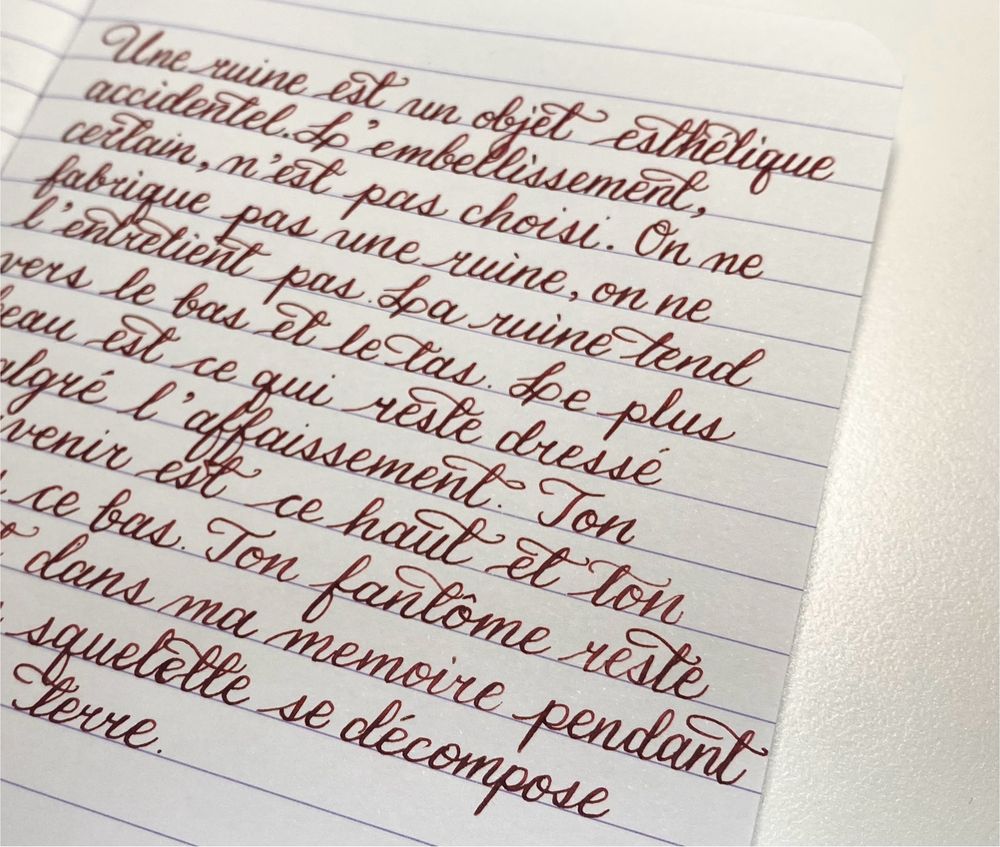 Une ruine est un objet esthétique
accidentel. L'embellissement,
certain, n'est pas choisi. On ne
fabrique pas une ruine, on ne
l'entretient pas. La ruine tend
vers le bas et le tas. Le plus
beau est ce qui reste dressé
malgré l'affaissement. Ton
venir est ce haut et ton
ce bas. Ton fantôme reste
dans ma memoire pendant
squelette se décompose
terre.